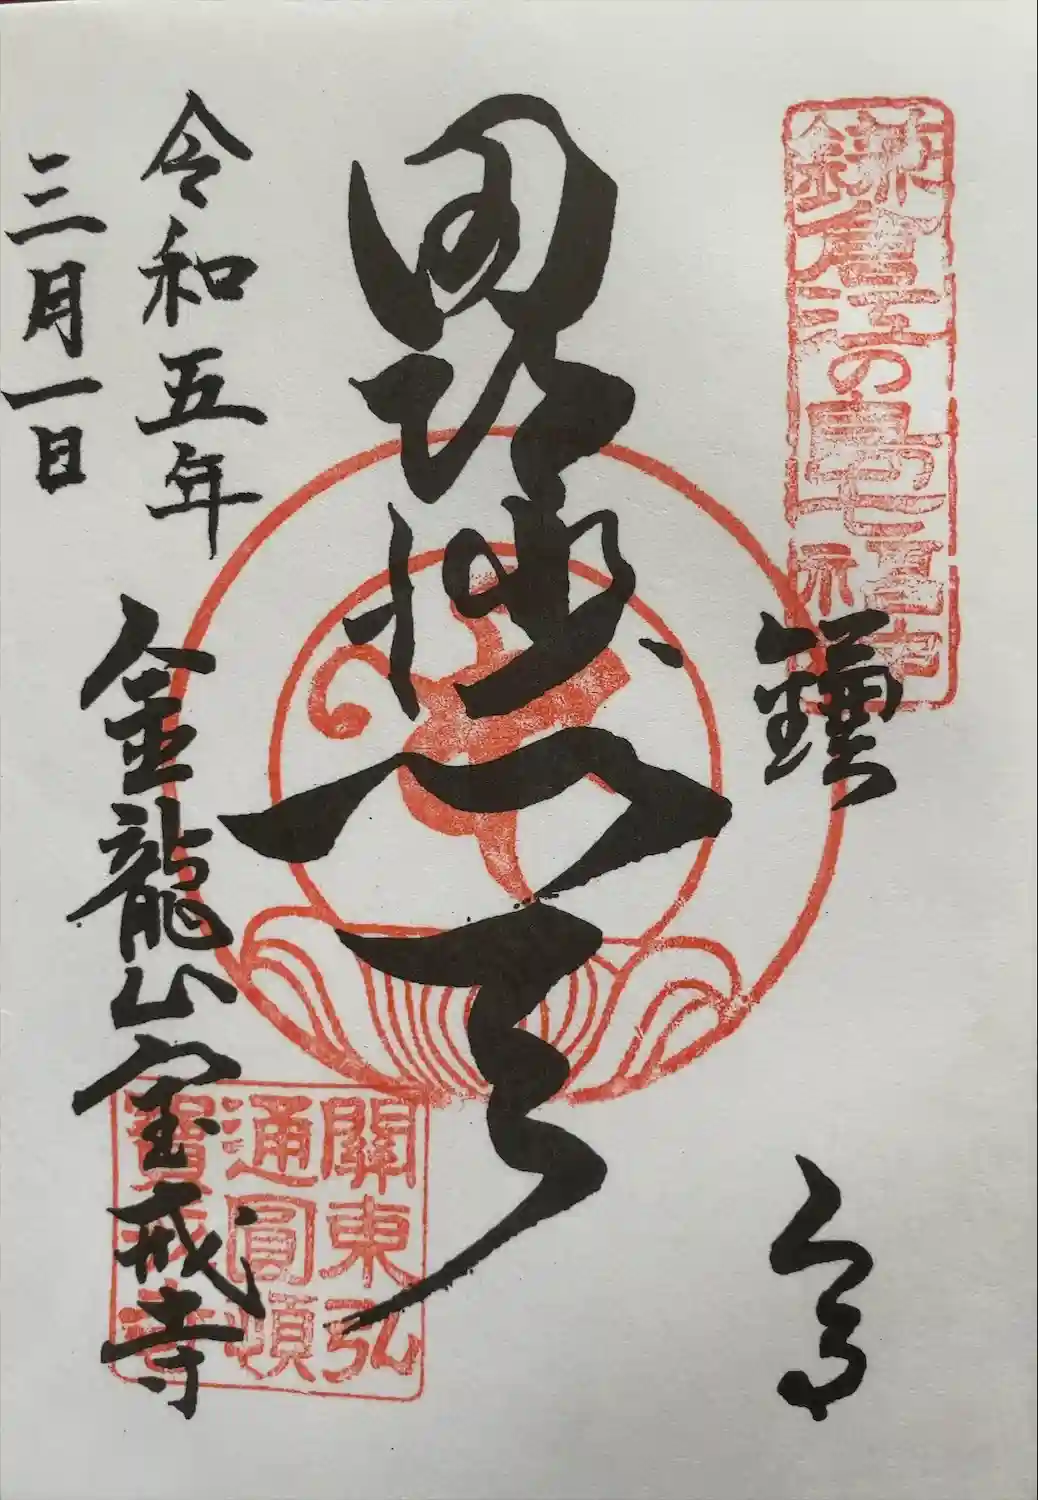 鎌倉江の島七福神
鎌倉
毘沙門天
關東弘
通圓頓
寳戒寺
令和五年
三月一日
金龍山宝戒寺